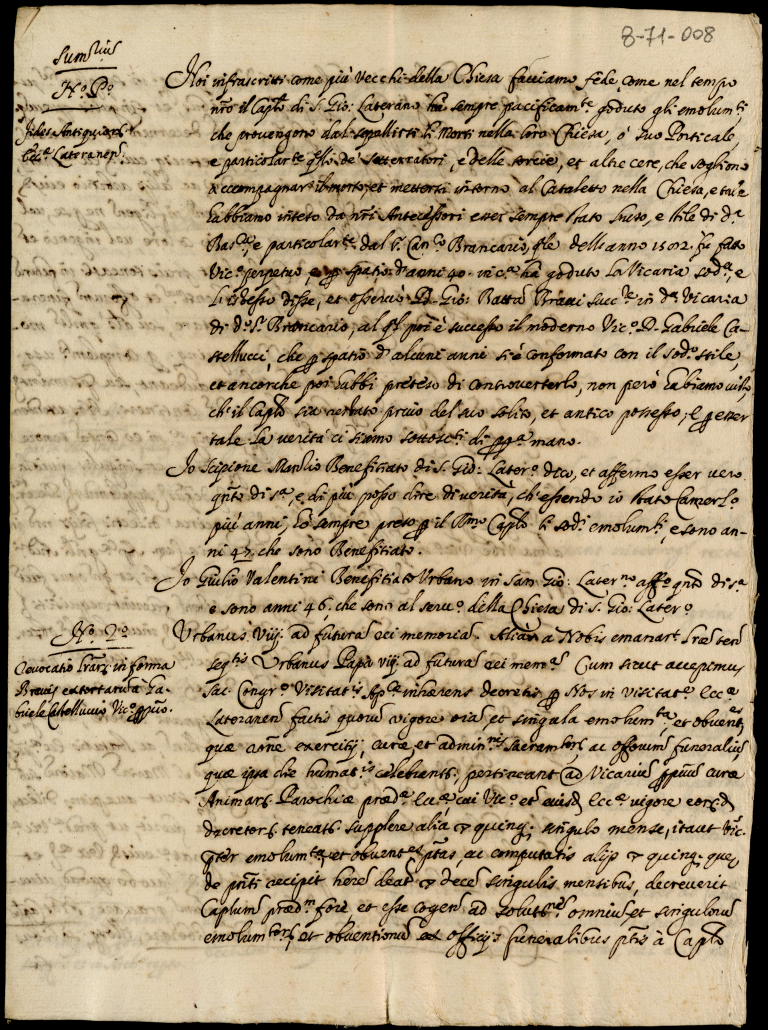 8-71-008
Sum.rius
N.o P.o
Fides Antiquiorũ
Ecc.æ Lateranen:
Noi infrascritti come più Vecchi della Chiesa facciamo fede, come nel tempo
nrõ il Cap.lo di S. Gio: Laterano ha sempre pacificam.te goduto gli emolum.ti
che provengono dal sepellirsi li Morti nella loro Chiesa, ò suo Porticale,
e particolar.te q.lli de' sotterratori, e delle torcie, et altre cere, che sogliono
accompagnar il morto, et mettersi intorno al Cataletto nella Chiesa, e tutto
habbiamo inteso da nrĩ Antecessori esser sempre stato Iuso, e stile di d.a
Bas.ca, e particolar.te dal q. Can.co Brancario, q.le dell'anno 1502. fu fatto
Vic.o perpetuo, e p spatio d'anni 40. in c.a ha goduto la Vicaria sod.a, e
l'istesso disse, et osservò D. Gio: Batta Bravi succ.re in d.a Vicaria
di d.o S.r Brancario, al q.l poi è successo il moderno Vic.o D. Gabriele Ca-
stellucci, che p spatio d'alcuni anni si è conformato con il sod.o stile,
et ancorche poi habbi preteso di controverterlo, non però habiamo visto
ch'il Cap.lo sia restato privo del suo solito, et antico possesso; E p esser
tale la verità ci siamo sottosc.ti di pp.a mano.
Io Scipione Manlio Benefitiato di S. Gio: Later.o dico, et affermo esser vero
q.nto di s.a, e di più posso dire di verità, ch'essendo io stato Camerl.o
più anni, hò sempre preso p il R.mo Cap.lo li sod.i emolum.ti, e sono an-
ni 47. che sono Benefitiato.
Io Giulio Valentini Benefitiato Urbano in San Gio: Later.no aff.o q.nto di s.a
e sono anni 46. che sono al serv.o della Chiesa di S. Gio: Later.o
N.o 2.o
Revocatio Lrarũ in forma
Brevis extortarũ à Ga-
briele Castelluccio Vic.o ppuo.
Urbanus Viij. ad futurã rei memoriã. Aliàs a Nobis emanarũt Lræ tenõ
seq.tis Urbanus Papa viij. ad futurã rei mem.ã Cum sicut accepimus
Sac. Congr.o Visitat.is Ap.cæ inhærens decretis p Nos in visitat.e Ecc.æ
Lateranen factis quorũ vigore oĩa et singula emolum.ta, et obvent.es
quæ rõne exercitij, curæ, et admin.nis Sacram.torũ, ac officiorũ funeraliũ
quæ ipsa die humat.is celebrantr, pertineant ad Vicariũ ppuũ curæ
Animarũ Parochiæ præd.æ Ecc.æ cui Vic.o et eiusd. Ecc.æ vigore eorũd.
decretorũ teneatr supplere alia &ta quinq; singulo mense, itaut Vic.
pter emolum.ta, et obvent.es ptas, ac computatis alijs &ta quinq; quæ
de pnti recipit here deat &ta decẽ singulis mensibus, decreverit
Caplum præd.m fore, et esse cogen ad solut.nẽ omniũ, et singulorũ
emolum.torũ, et obventionũ ex officijs funeralibus ptis à Cap.lo